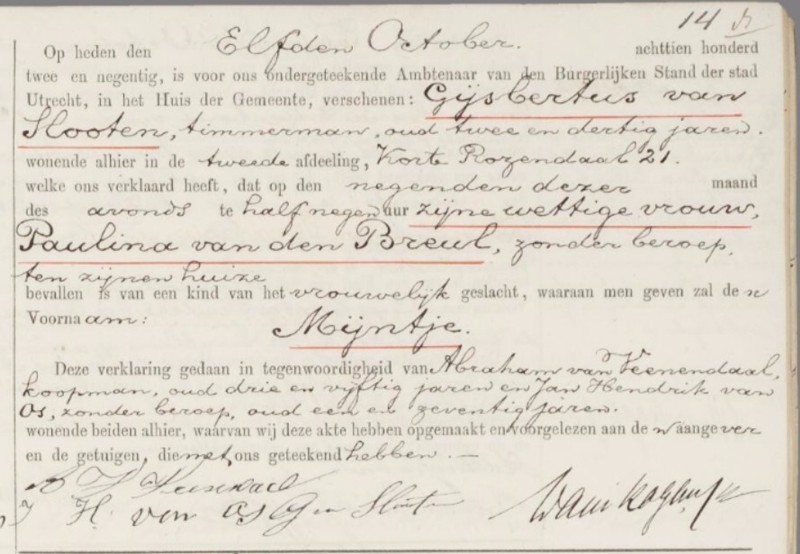 14
Op heden den Elfden October. achttien honderd
twee en negentig, is voor ons ondergeteekende Ambtenaar van den Burgerlijken Stand der stad
Utrecht, in het Huis der Gemeente, verschenen: Gijsbertus van
Slooten, timmerman, oud twee en dertig jaren.
wonende alhier in de tweede afdeeling, Korte Rozendaal 21.
welke ons verklaard heeft, dat op den negenden dezer maand
des avonds te half negen uur zijne wettige vrouw,
Paulina van den Breul, zonder beroep,
ten zijnen huize
bevallen is van een kind van het vrouwelijk geslacht, waaraan men geven zal de n
Voornaam:
Mijntje.
Deze verklaring gedaan in tegenwoordigheid van Abraham van Veenendaal,
koopman, oud drie en vijftig jaren en Jan Hendrik van
Os, zonder beroep, oud een en zeventig jaren.
wonende beiden alhier, waarvan wij deze akte hebben opgemaakt en voorgelezen aan de n aangever
en de getuigen, die met ons geteekend hebben. —
J H van Os G van Slooten